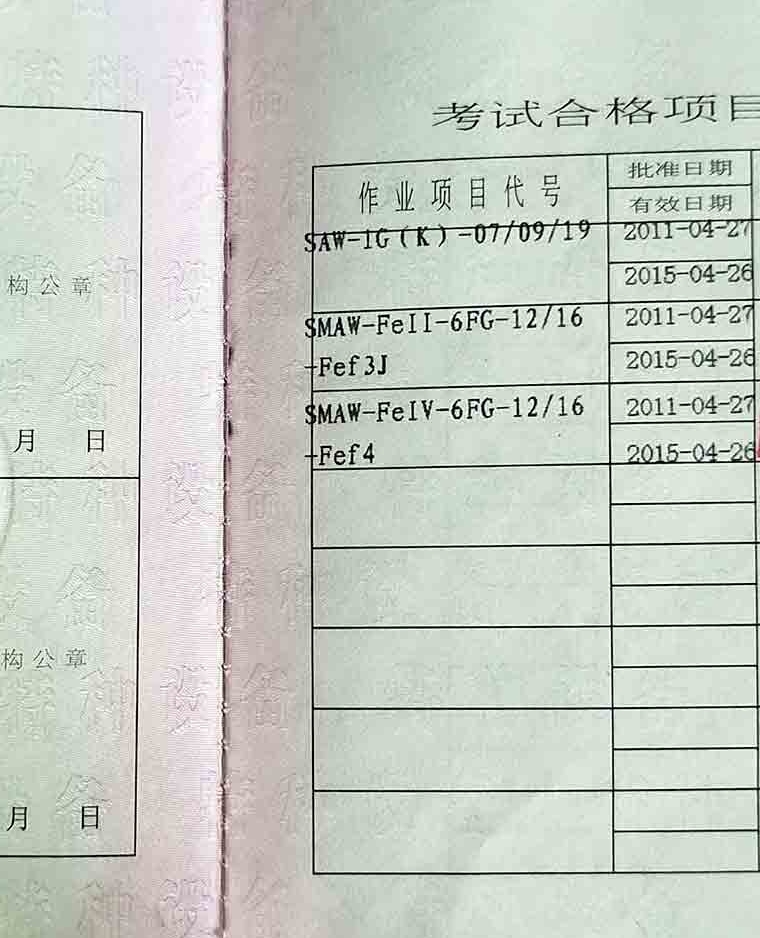 构公章
月 日
构公章
月 日
考试合格项目
作业项目代号
批准日期
有效日期
SAW-1G(K)-07/09/19
2011-04-27
2015-04-26
SMAW-FeII-6FG-12/16
2011-04-27
-Fef3J
2015-04-26
SMAW-FeIV-6FG-12/16
2011-04-27
-Fef4
2015-04-26